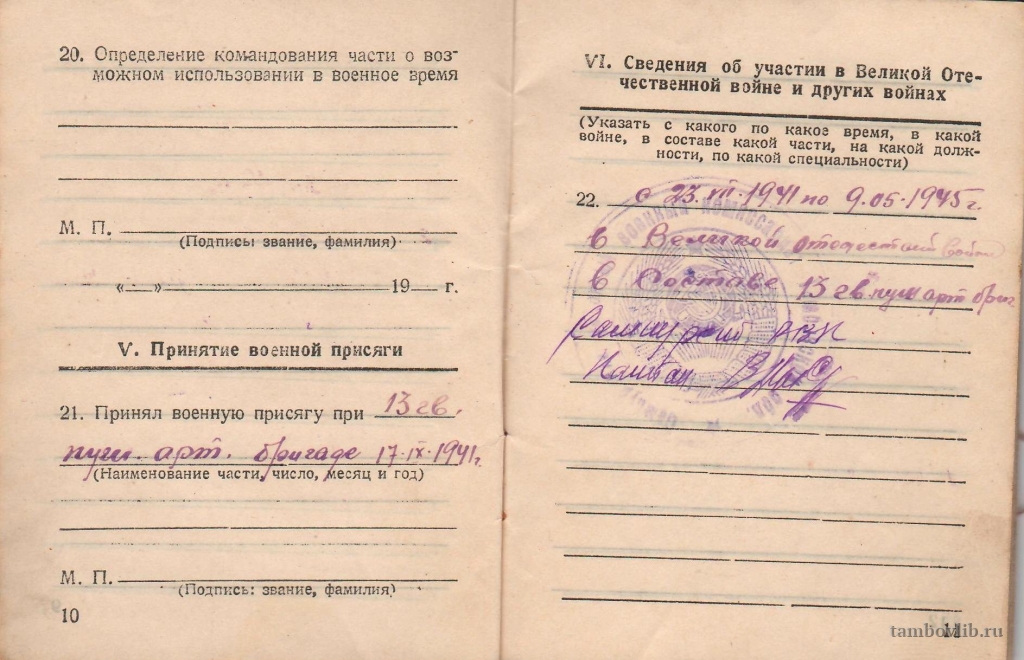 20. Определение командования части о воз-
можном использовании в военное время
М. П.
(Подписы звание, фамилия)
«—» 19 г.
V. Принятие военной присяги
21. Принял военную присягу при 13 гв.
пуш. арт. бригаде 17·IX·1941г.
(Наименование части, число, месяц и год)
М. П.
(Подпись: звание, фамилия)
10
VI. Сведения об участии в Великой Оте-
чественной войне и других войнах
(Указать с какого по какое время, в какой
войне, в составе какой части, на какой долж-
ности, по какой специальности)
22. с 23. 1941 по 9.05.1945 г.
в Великой
в Составе 13 гв. пуш арт бриг
11
tambovlib.ru